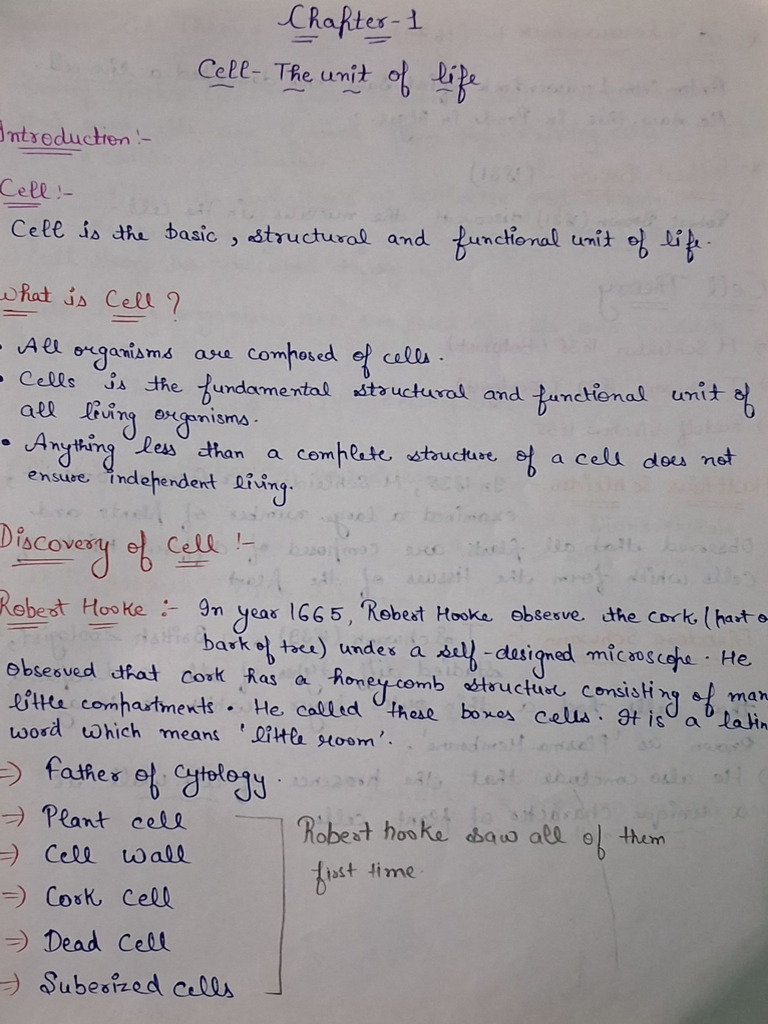 Chapter-1
Cell- The unit of life
Introduction :-
Cell :-
Cell is the basic, structural and functional unit of life.
What is Cell ?
• All organisms are composed of cells.
• Cells is the fundamental structural and functional unit of
all living organisms.
• Anything less than a complete structure of a cell does not
ensure independent living.
Discovery of Cell :-
Robert Hooke :- In year 1665, Robert Hooke observe the cork (part o
bark of tree) under a self-designed microscope. He
observed that cork has a honeycomb structure consisting of man
little compartments. He called these boxes 'cells'. It is a latin
word which means 'little room'.
=) Father of Cytology.
=) Plant cell
=) Cell wall
=) Cork cell
=) Dead Cell
=) Suberized cells
Robert hooke saw all of them
first time.